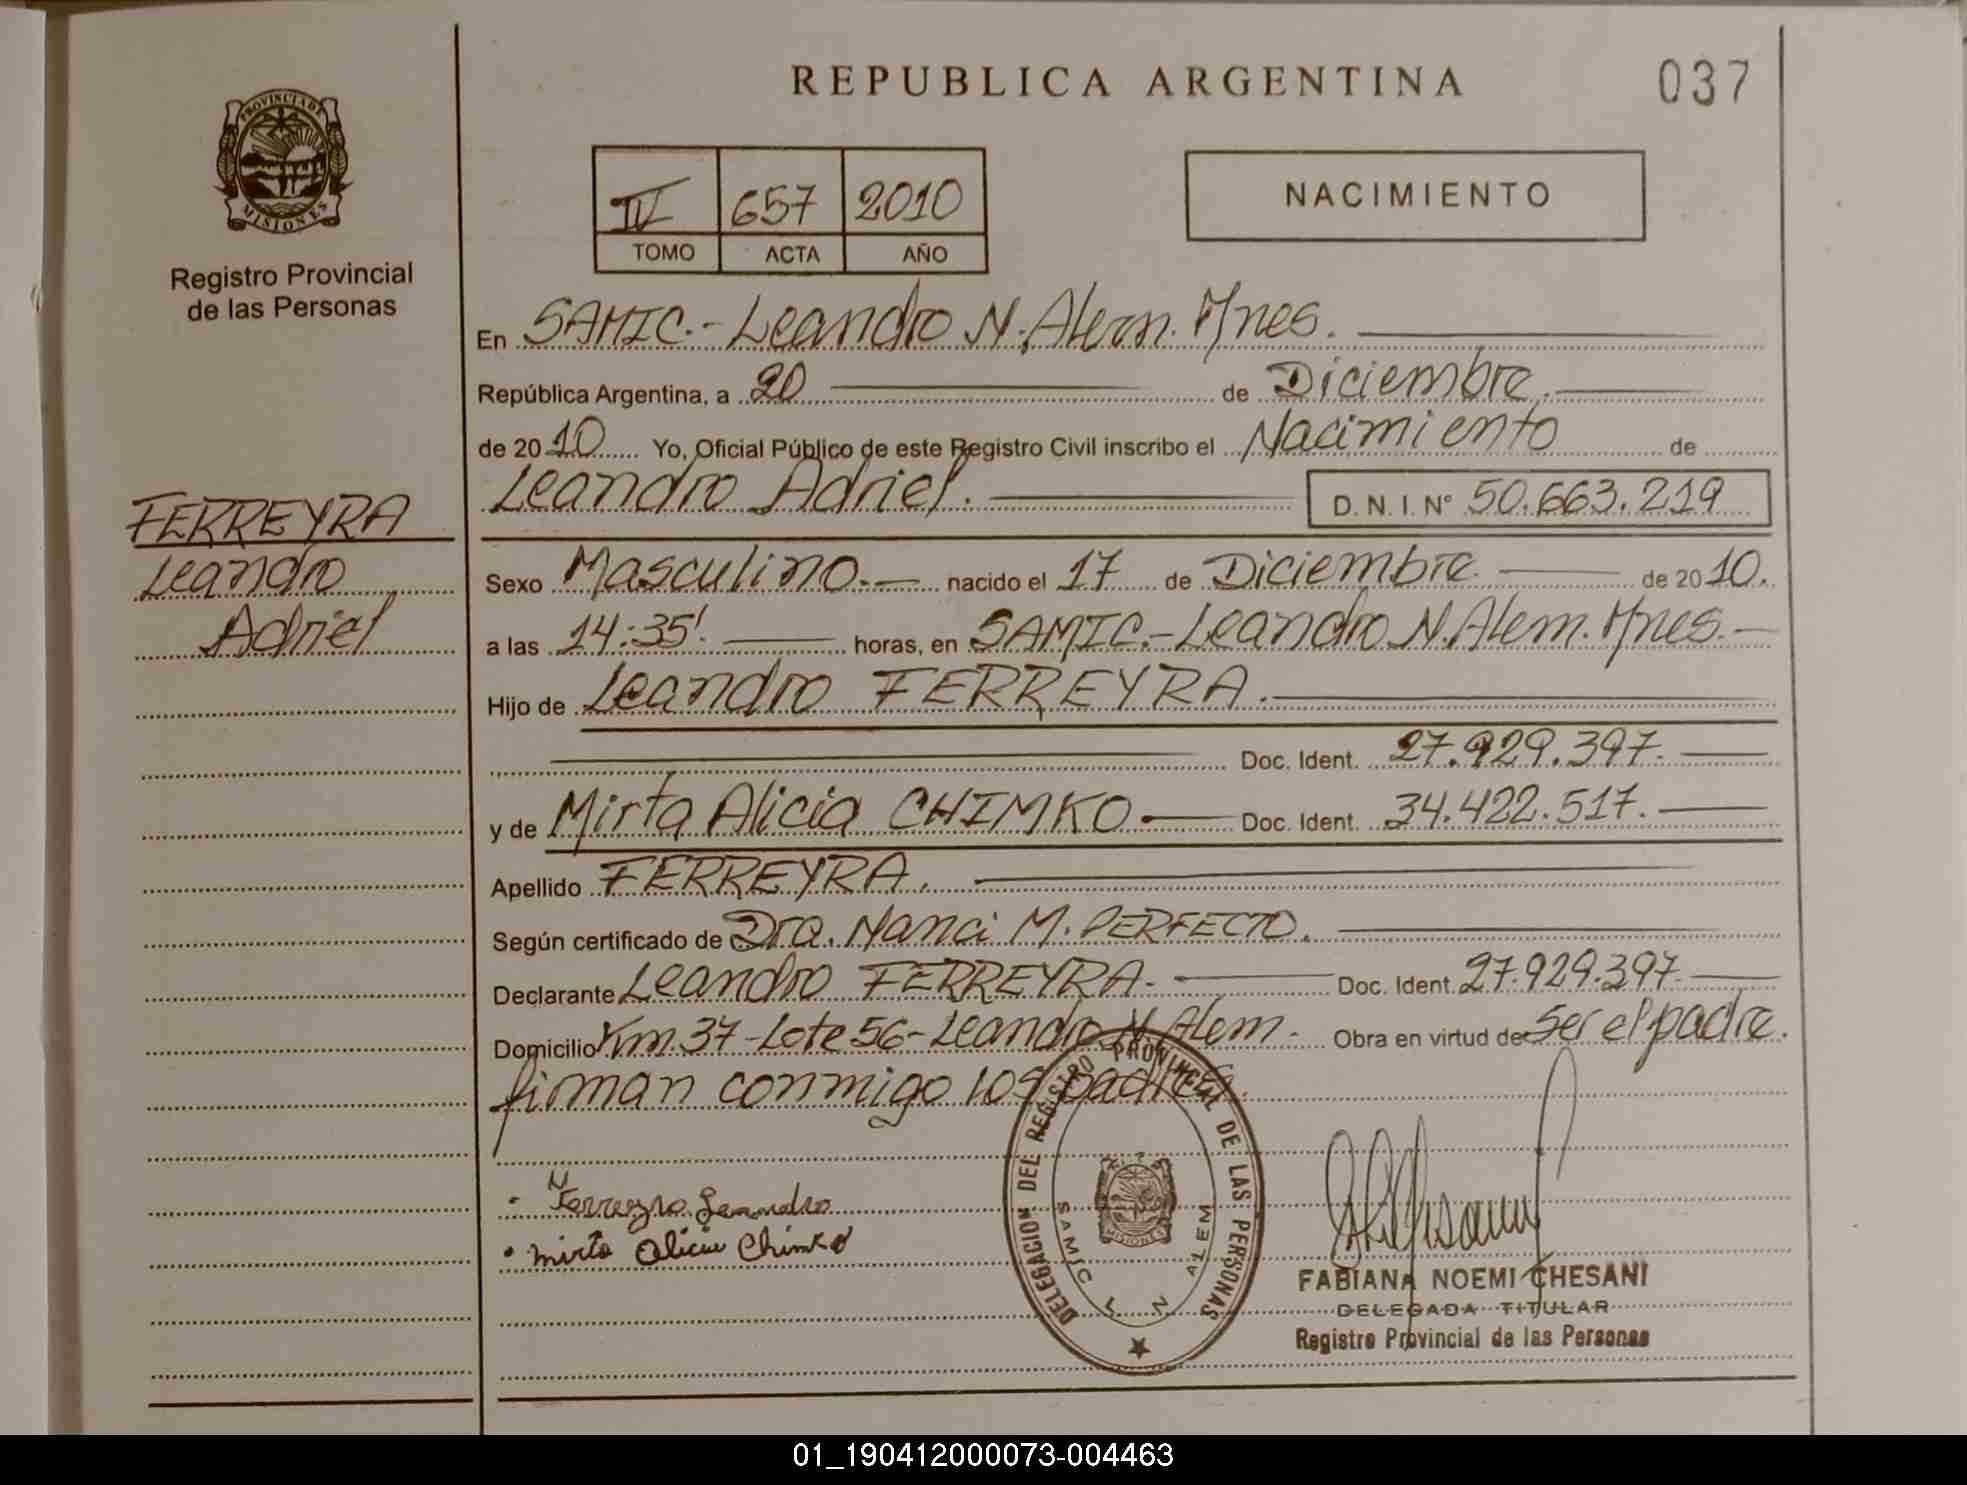 REPUBLICA ARGENTINA
037
PROVINCIA DE
MISIONES
Registro Provincial
de las Personas
IV 657 2010
TOMO ACTA AÑO
NACIMIENTO
En SAMIC.- Leandro N. Alem. Mnes.
República Argentina, a 20 de Diciembre.
de 2010 Yo, Oficial Público de este Registro Civil inscribo el Nacimiento de
Leandro Adriel. D. N. I. N° 50.663.219
FERREYRA
Leandro
Adriel
Sexo Masculino.- nacido el 17 de Diciembre de 2010.
a las 14:35'. horas, en SAMIC.- Leandro N. Alem. Mnes.-
Hijo de Leandro FERREYRA.
Doc. Ident. 27.929.397.
y de Mirta Alicia CHIMKO Doc. Ident. 34.422.517.
Apellido FERREYRA.
Según certificado de Dra. Nanci M. PERFECTO.
Declarante Leandro FERREYRA. Doc. Ident. 27.929.397.
Domicilio Km. 37 - Lote 56 - Leandro N. Alem. Obra en virtud de Ser el padre.
firman conmigo los padres.
Ferreyra Leandro
Mirta Alicia Chimko
DELEGACION DEL REGISTRO PROVINCIAL DE LAS PERSONAS
SAMIC L N ALEM
MISIONES
FABIANA NOEMI CHESANI
DELEGADA TITULAR
Registro Provincial de las Personas
01_190412000073-004463